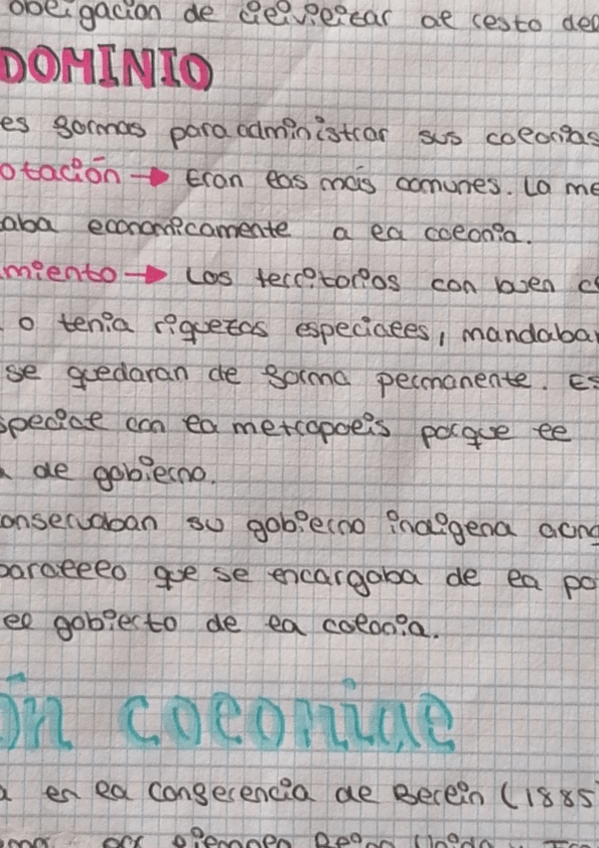 obligación de civilizar al resto del
DOMINIO
es formas para administrar sus colonias
otación → Eran las más comunes. La me
aba economicamente a la colonia.
miento → Los territorios con buen c
o tenia riquezas especiales, mandaban
se quedaran de forma permanente. Es
special con la metropolis porque el
de gobierno.
onservaban su gobierno indigena aunq
paralelo que se encargaba de la po
el gobierto de la colonia.
ón colonial
en la Conferencia de Berlin (1885
Reino Unido